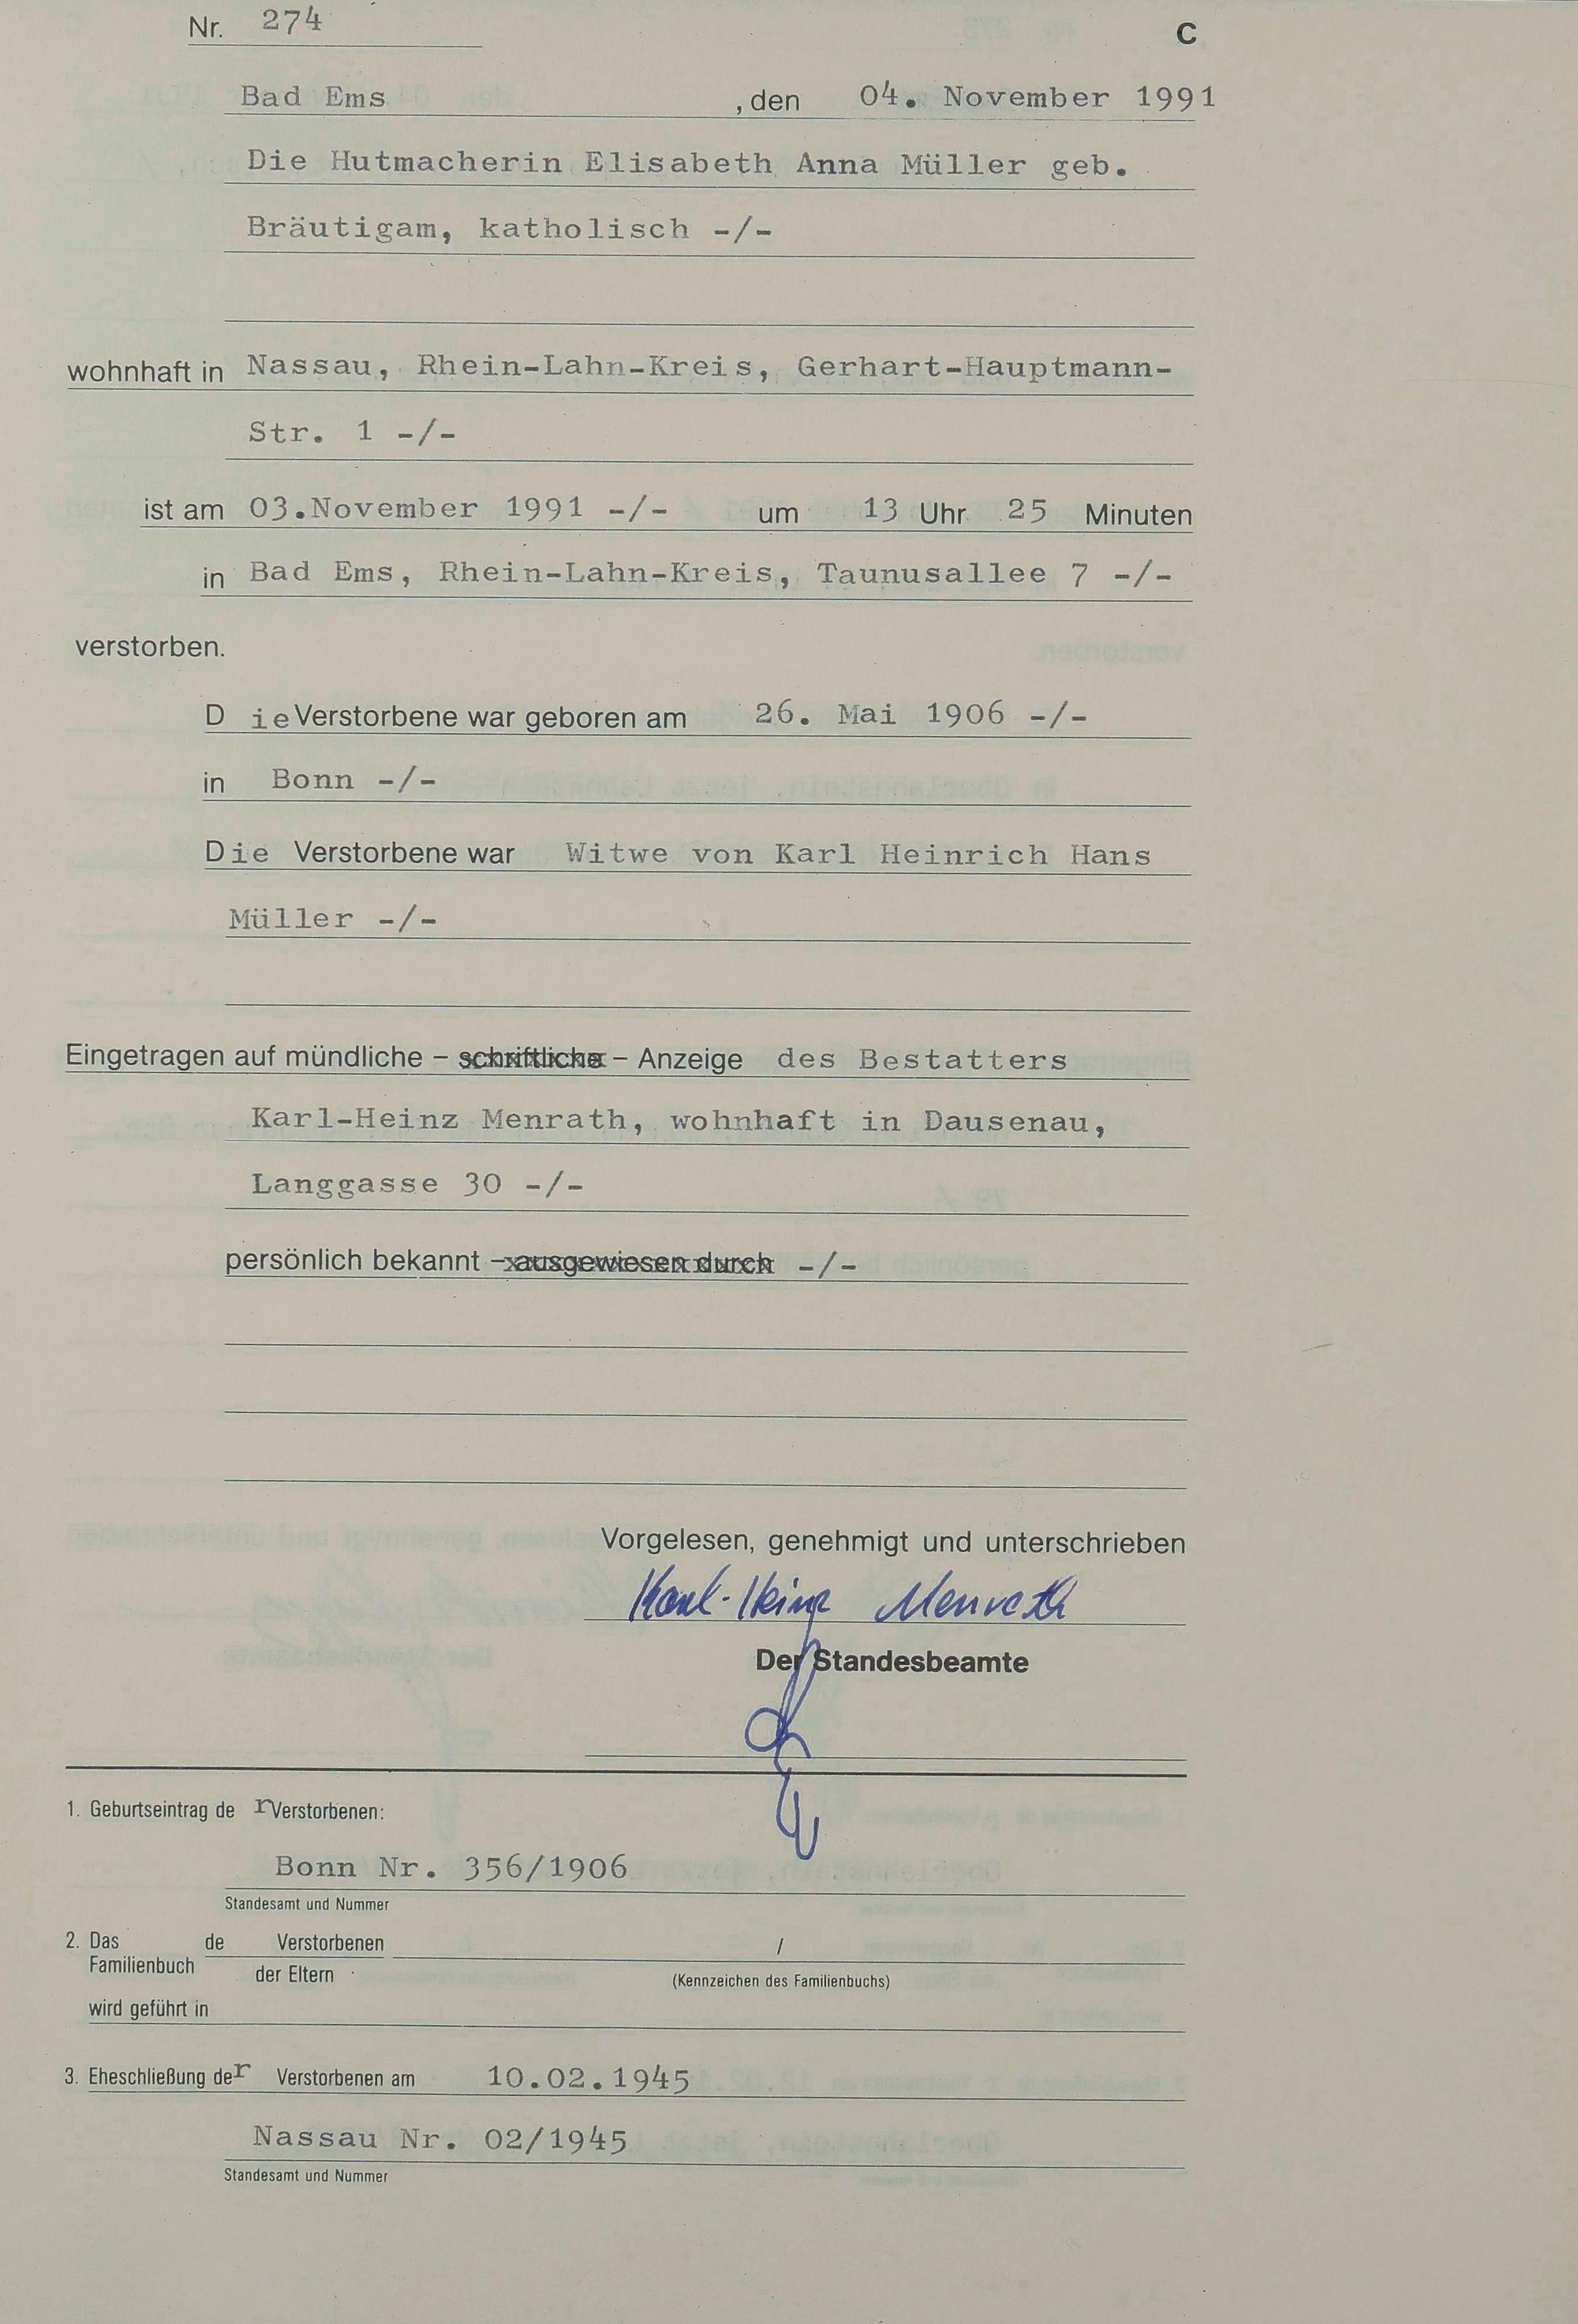 Nr. 274
C
Bad Ems , den 04. November 1991
Die Hutmacherin Elisabeth Anna Müller geb.
Bräutigam, katholisch -/-
wohnhaft in Nassau, Rhein-Lahn-Kreis, Gerhart-Hauptmann-
Str. 1 -/-
ist am 03.November 1991 -/- um 13 Uhr 25 Minuten
in Bad Ems, Rhein-Lahn-Kreis, Taunusallee 7 -/-
verstorben.
Die Verstorbene war geboren am 26. Mai 1906 -/-
in Bonn -/-
Die Verstorbene war Witwe von Karl Heinrich Hans
Müller -/-
Eingetragen auf mündliche – schriftliche – Anzeige des Bestatters
Karl-Heinz Menrath, wohnhaft in Dausenau,
Langgasse 30 -/-
persönlich bekannt – ausgewiesen durch -/-
Vorgelesen, genehmigt und unterschrieben
Karl-Heinz Menrath
Der Standesbeamte
1. Geburtseintrag der Verstorbenen:
Bonn Nr. 356/1906
Standesamt und Nummer
2. Das de Verstorbenen /
Familienbuch der Eltern (Kennzeichen des Familienbuchs)
wird geführt in
3. Eheschließung der Verstorbenen am 10.02.1945
Nassau Nr. 02/1945
Standesamt und Nummer